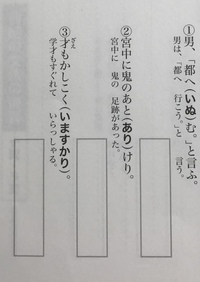 ①男、「都へ(いぬ)む。」と言ふ。
男は、「都へ 行こう。」と 言う。
②宮中に鬼のあと(あり)けり。
宮中に 鬼の 足跡があった。
③才もかしこく(いますかり)。
ざえ
学才もすぐれて いらっしゃる。